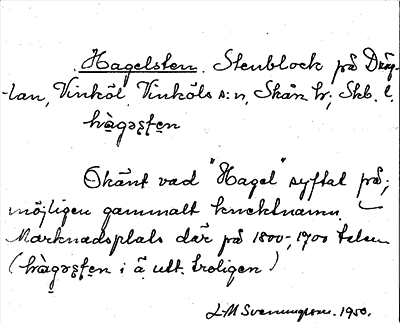 Hagelsten. Stenblock på Dräg-
lan, Vinköl, Vinköls s:n, Skån hr; Skb. l.
hàgəʂtən
Okänt vad "Hagel" syftat på;
möjligen gammalt knektnamn.
Marknadsplats där på 1800-, 1700 talen
(hàgəʂtən i ä utt. troligen)
L. M. Svenungsson. 1950.